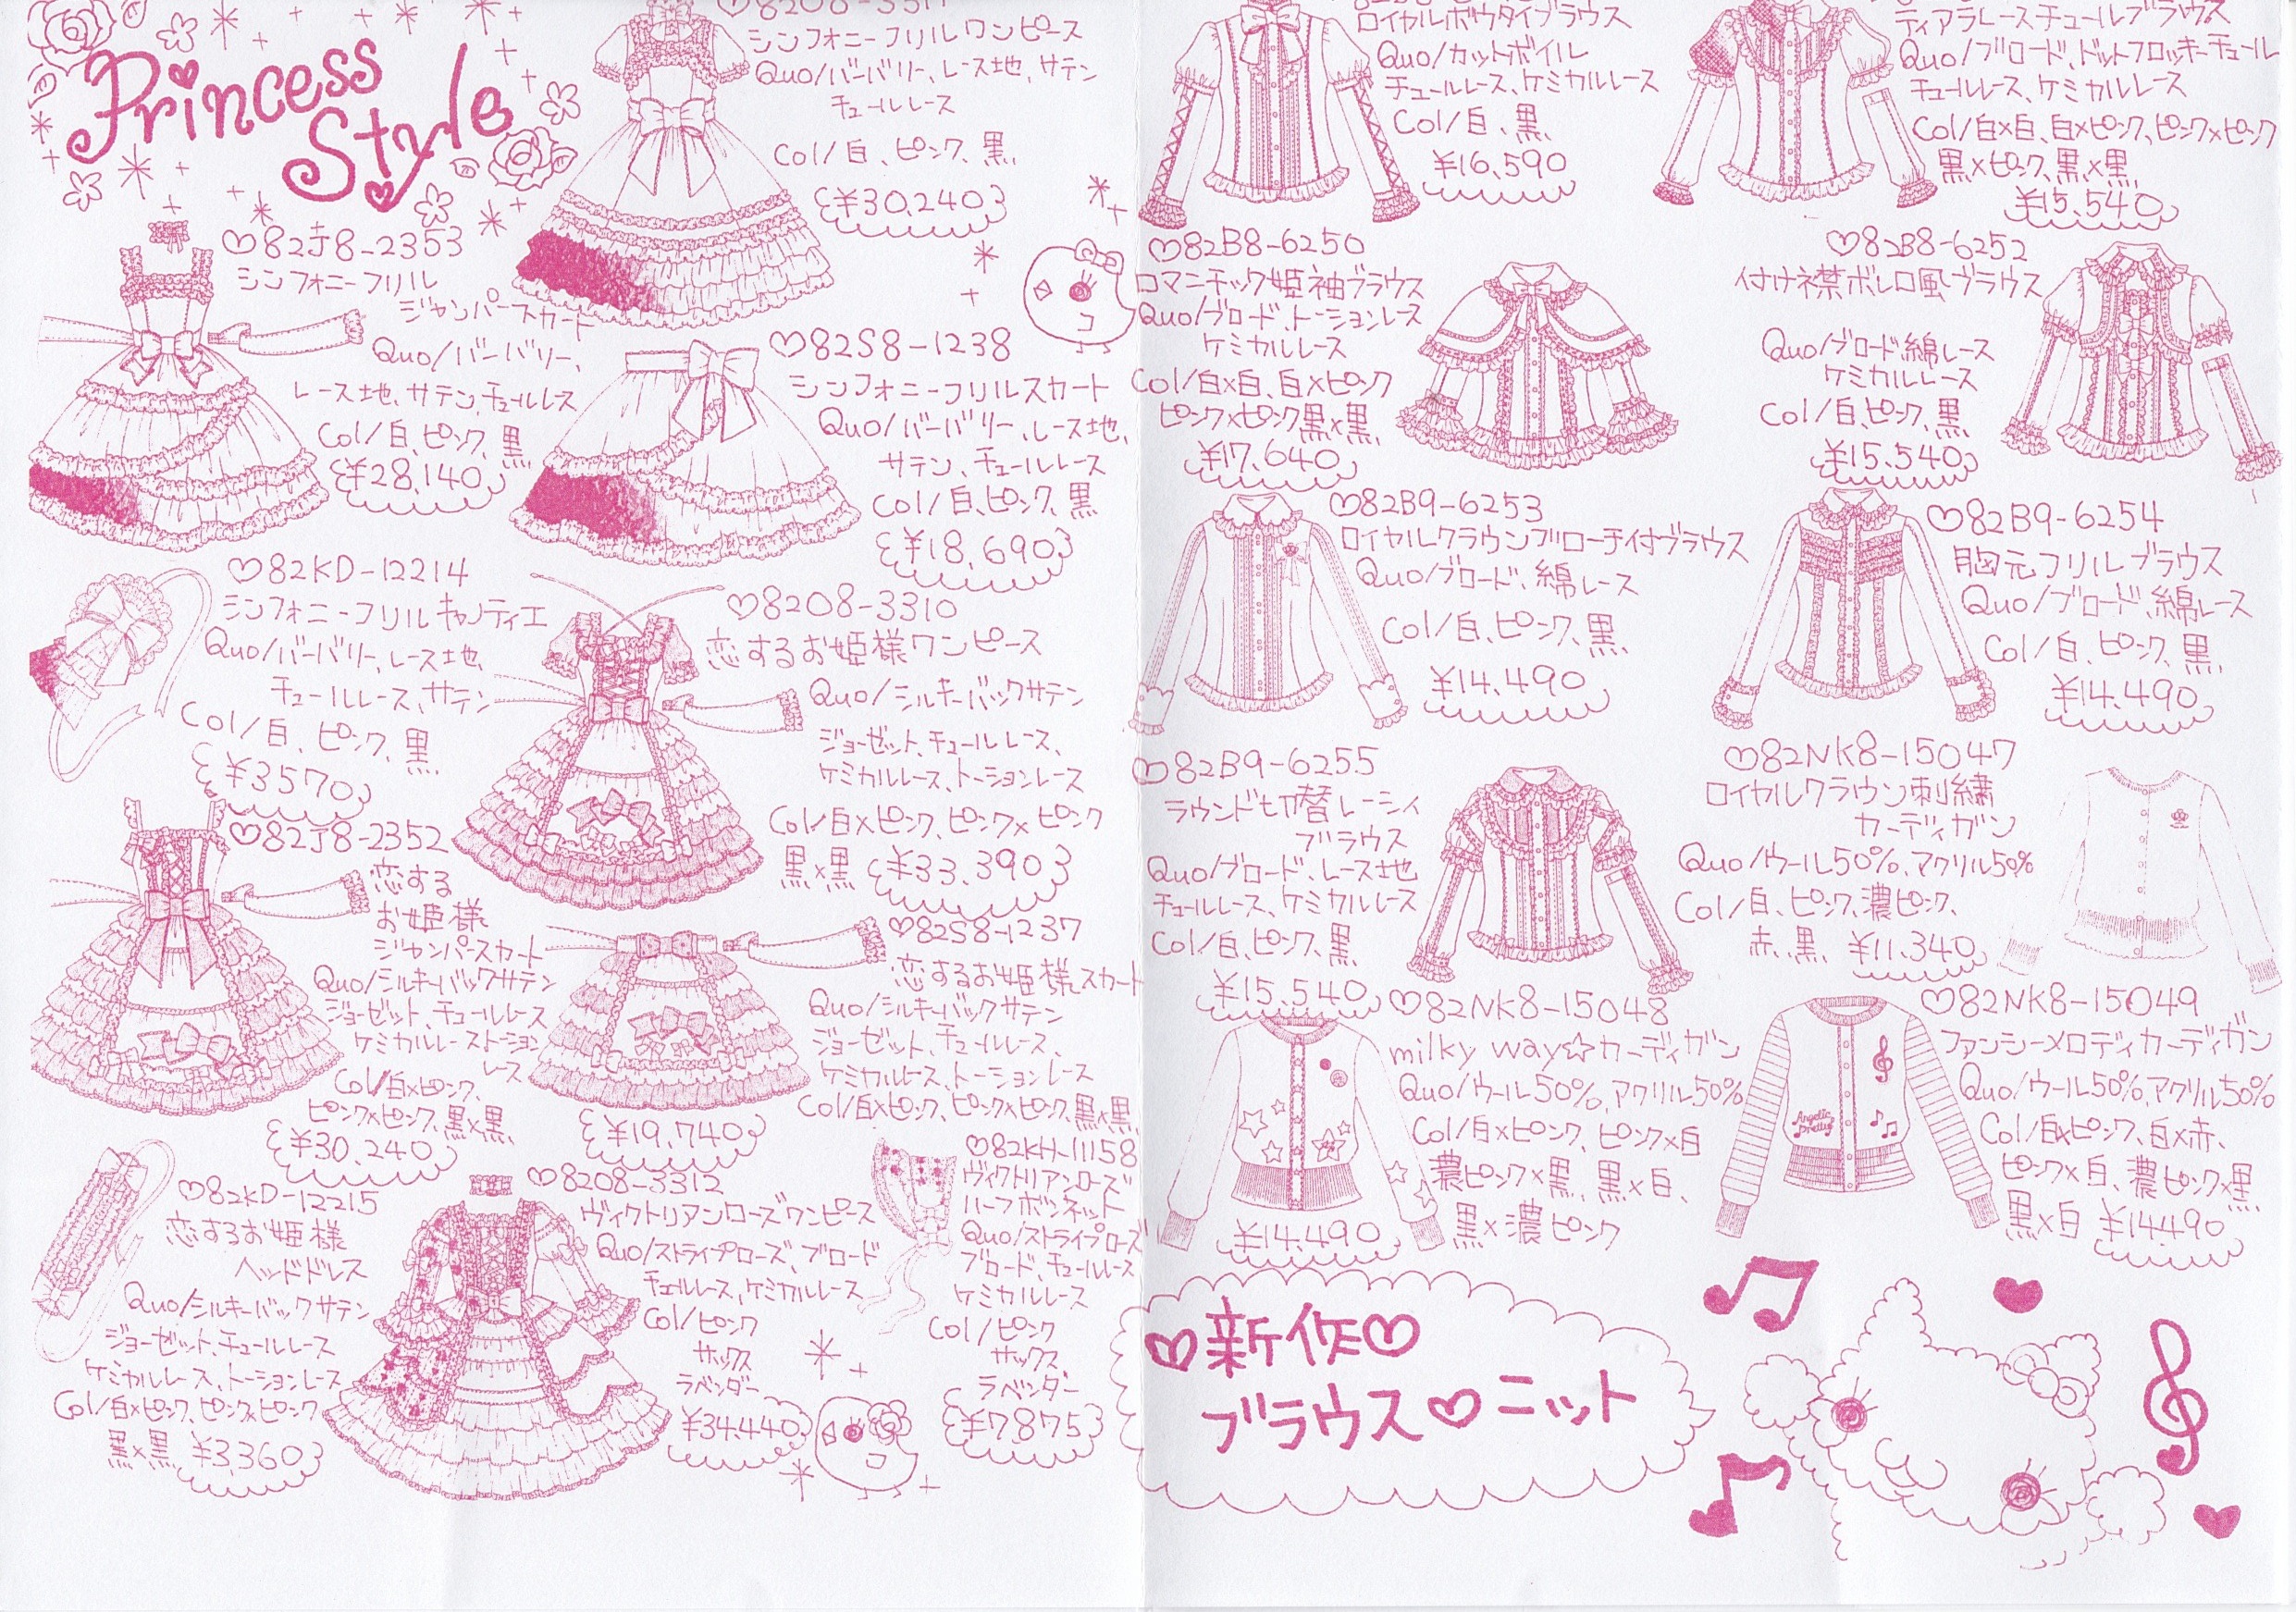 Princess
Style
シンフォニーフリルワンピース
Quo/バーバリー、レース地、サテン
チュールレース
Col/白、ピンク、黒
¥30,240
♡82J8-2353
シンフォニーフリル
ジャンパースカート
Quo/バーバリー、
レース地、サテン、チュールレース
Col/白、ピンク、黒
¥28,140
♡82S8-1238
シンフォニーフリルスカート
Quo/バーバリー、レース地、
サテン、チュールレース
Col/白、ピンク、黒
¥18,690
♡82KD-12214
シンフォニーフリルキャノティエ
Quo/バーバリー、レース地、
チュールレース、サテン
Col/白、ピンク、黒
¥3570
♡8208-3310
恋するお姫様ワンピース
Quo/シルキーバックサテン
ジョーゼット、チュールレース、
ケミカルレース、トーションレース
Col/白×ピンク、ピンク×ピンク
黒×黒 ¥33,390
♡82J8-2352
恋する
お姫様
ジャンパースカート
Quo/シルキーバックサテン
ジョーゼット、チュールレース
ケミカルレーストーション
レース
Col/白×ピンク、
ピンク×ピンク、黒×黒
¥30,240
♡82S8-1237
恋するお姫様スカート
Quo/シルキーバックサテン
ジョーゼット、チュールレース、
ケミカルレース、トーションレース
Col/白×ピンク、ピンク×ピンク、黒×黒
¥19,740
♡82KD-12215
恋するお姫様
ヘッドドレス
Quo/シルキーバックサテン
ジョーゼット、チュールレース
ケミカルレース、トーションレース
Col/白×ピンク、ピンク×ピンク
黒×黒 ¥3,360
♡8208-3312
ヴィクトリアンローズワンピース
Quo/ストライプローズ、ブロード
チュールレース、ケミカルレース
Col/ピンク
サックス
ラベンダー
¥34,440
♡82KH-11158
ヴィクトリアンローズ
ハーフボンネット
Quo/ストライプローズ
ブロード、チュールレース
ケミカルレース
Col/ピンク
サックス
ラベンダー
¥7,875
ロイヤルボウタイブラウス
Quo/カットボイル
チュールレース、ケミカルレース
Col/白、黒
¥16,590
ティアラレースチュールブラウス
Quo/ブロード、ドットフロッキーチュール
チュールレース、ケミカルレース
Col/白×白、白×ピンク、ピンク×ピンク
黒×ピンク、黒×黒
¥15,540
♡82B8-6250
ロマンチック姫袖ブラウス
Quo/ブロード、トーションレース
ケミカルレース
Col/白×白、白×ピンク
ピンク×ピンク黒×黒
¥17,640
♡82B8-6252
付け襟ボレロ風ブラウス
Quo/ブロード綿レース
ケミカルレース
Col/白、ピンク、黒
¥15,540
♡82B9-6253
ロイヤルクラウンブローチ付ブラウス
Quo/ブロード、綿レース
Col/白、ピンク、黒
¥14,490
♡82B9-6254
胸元フリルブラウス
Quo/ブロード、綿レース
Col/白、ピンク、黒
¥14,490
♡82B9-6255
ラウンド切替レーシィ
ブラウス
Quo/ブロード、レース地
チュールレース、ケミカルレース
Col/白、ピンク、黒
¥15,540
♡82NK8-15047
ロイヤルクラウン刺繍
カーディガン
Quo/ウール50%、アクリル50%
Col/白、ピンク、濃ピンク、
赤、黒 ¥11,340
♡82NK8-15048
milky way☆カーディガン
Quo/ウール50%、アクリル50%
Col/白×ピンク、ピンク×白
濃ピンク×黒、黒×白、
黒×濃ピンク
¥14,490
♡82NK8-15049
ファンシーメロディカーディガン
Quo/ウール50%、アクリル50%
Col/白×ピンク、白×赤、
ピンク×白、濃ピンク×黒
黒×白 ¥14490
Angelic
Pretty
♡新作♡
ブラウス♡ニット